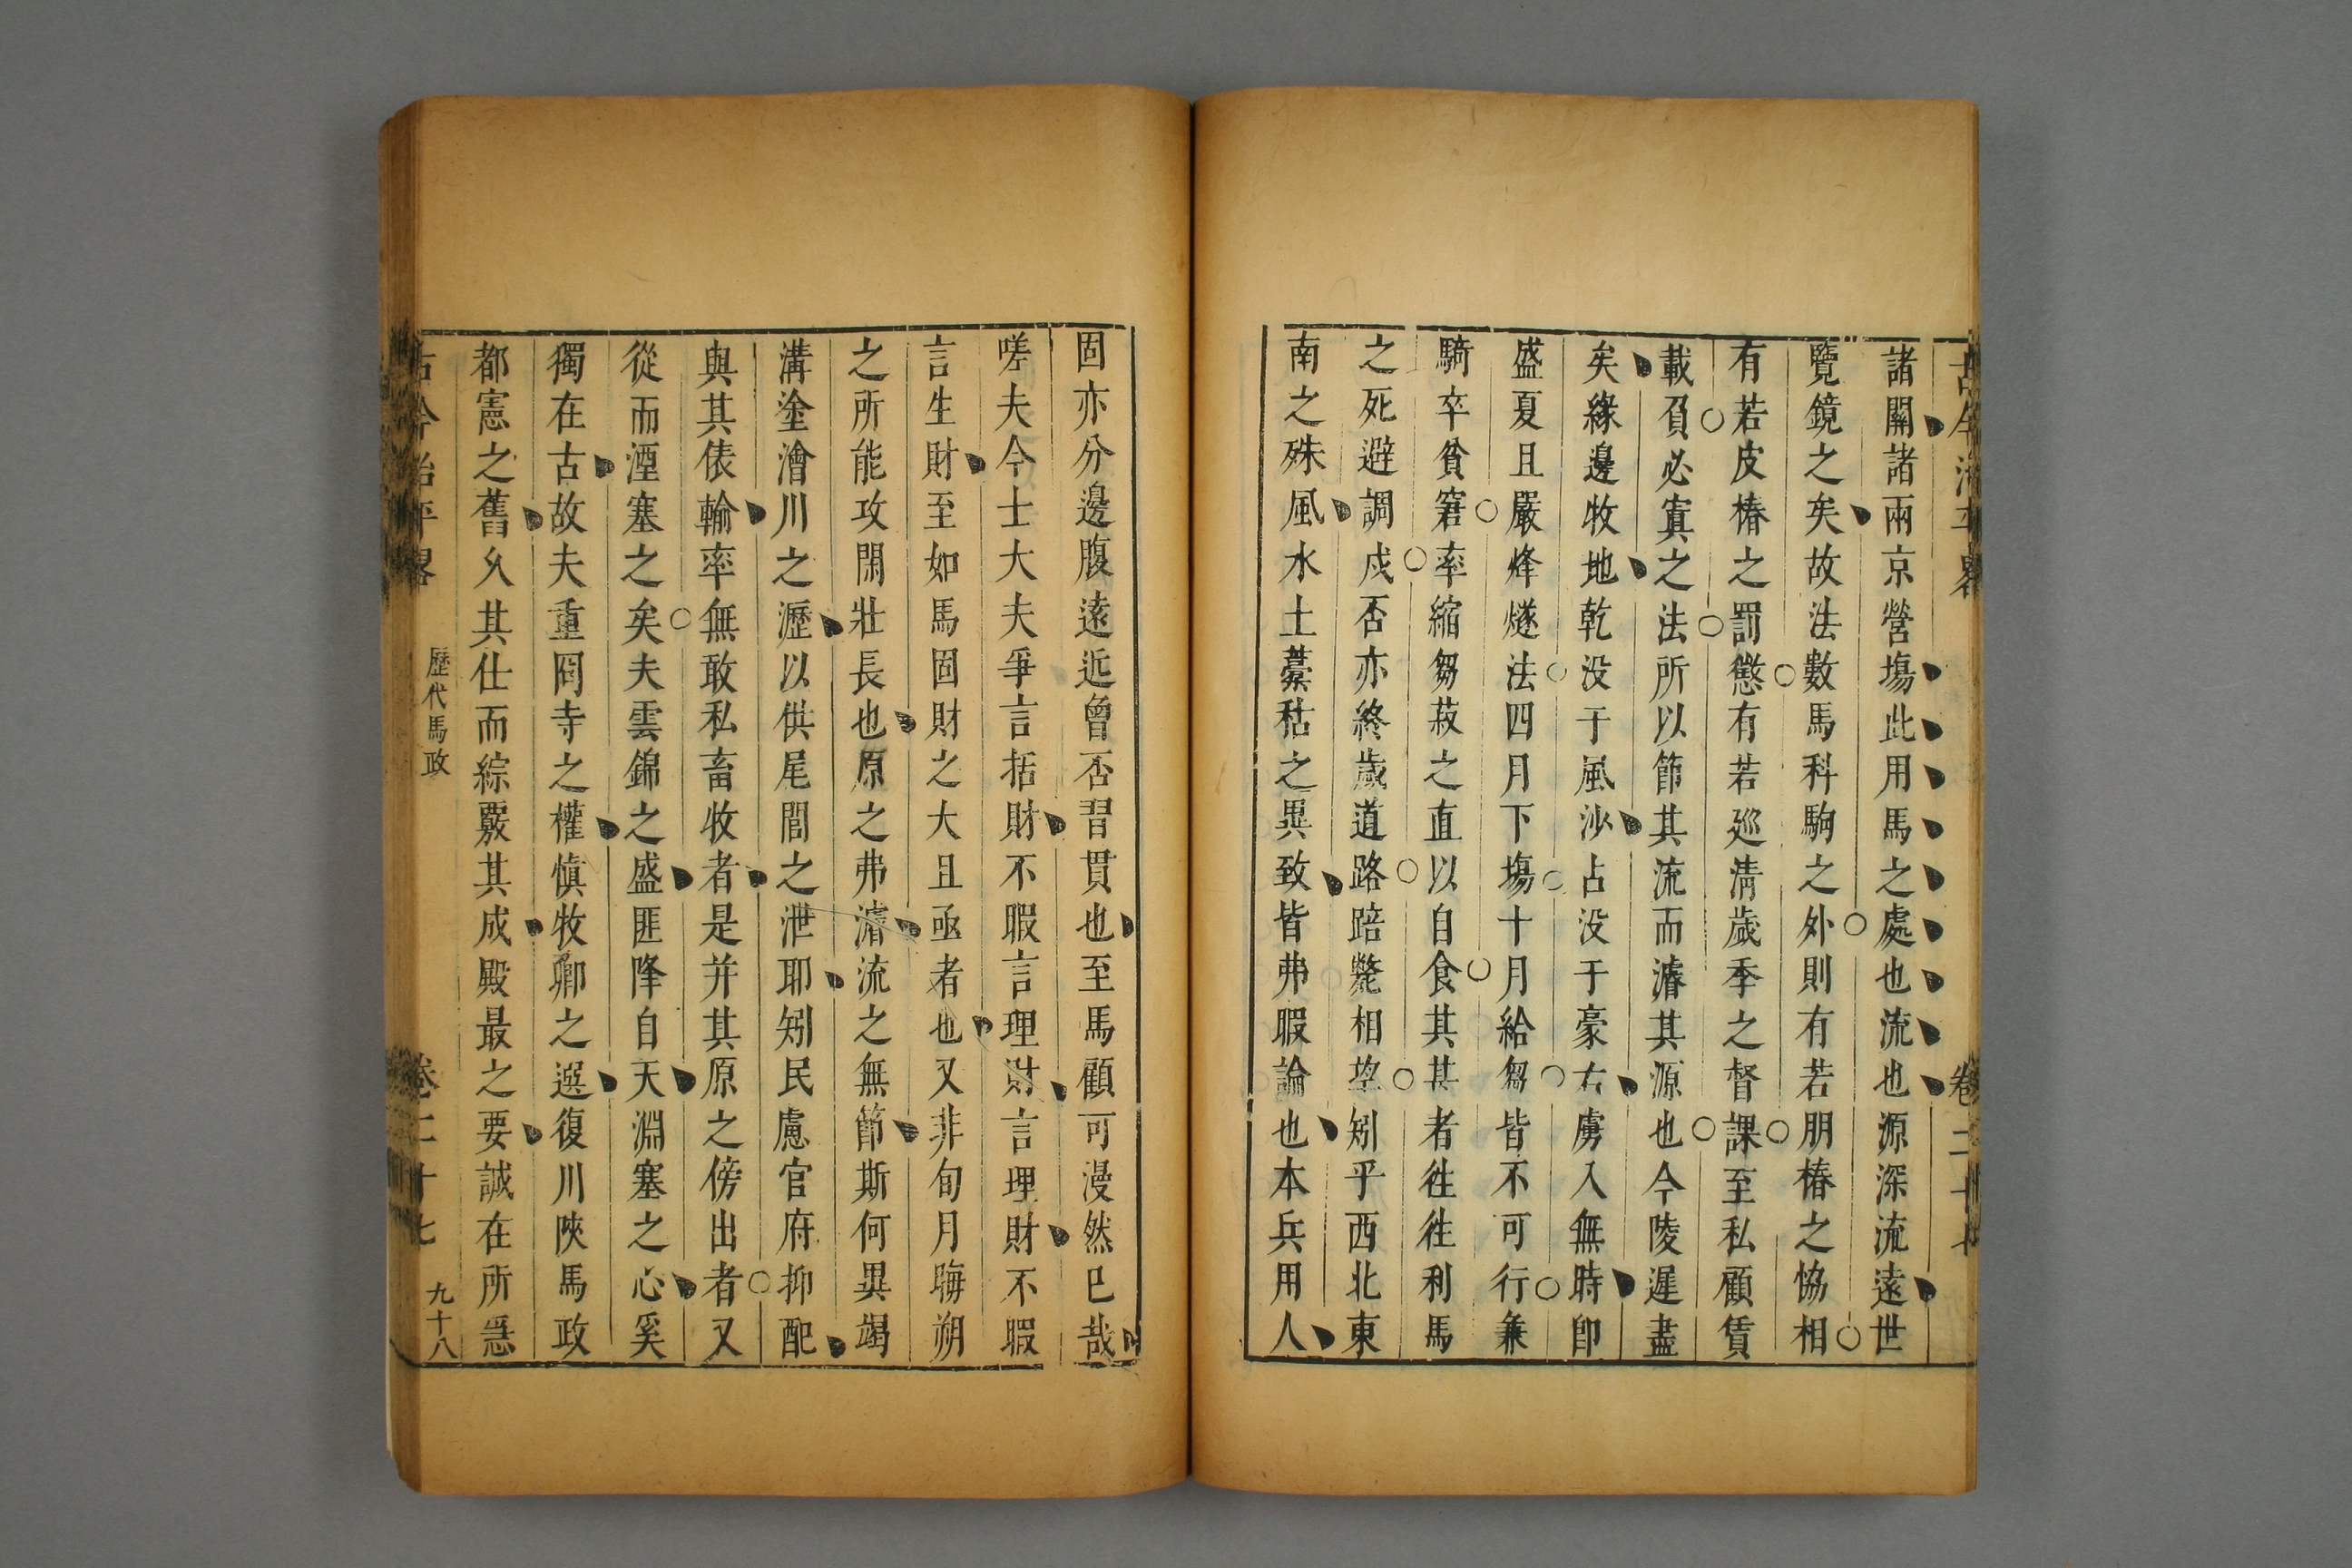 諸關諸兩京營塲此用馬之處也流也源深流遠世
覽鏡之矣故法數馬科駒之外則有若朋樁之恊相
有若皮樁之罰懲有若廵淸歲季之督課至私顧賃
載負必寘之法所以節其流而濬其源也今陵遲盡
矣緣邊牧地乾没于風沙占没于豪右虜入無時卽
盛夏且嚴烽燧法四月下塲十月給芻皆不可行兼
騎卒貧窘率縮芻菽之直以自食其甚者徃徃利馬
之死避調戍否亦終歲道路踣斃相望矧乎西北東
南之殊風水土藁秸之異致皆弗暇論也本兵用人
固亦分邊腹遠近曾否習貫也至馬顧可漫然已哉
嗟夫今士大夫爭言括財不暇言理財言理財不暇
言生財至如馬固財之大且亟者也又非旬月晦朔
之所能攻閑壯長也原之弗濬流之無節斯何異竭
溝塗澮川之瀝以供尾閭之泄耶矧民慮官府抑配
與其俵輸率無敢私畜收者是并其原之傍出者又
從而湮塞之矣夫雲錦之盛匪降自天淵塞之心奚
獨在古故夫重冏寺之權愼牧卿之選復川陝馬政
都憲之舊久其仕而綜覈其成殿最之要誠在所急
古今治平畧 歷代馬政 卷二十七 九十八